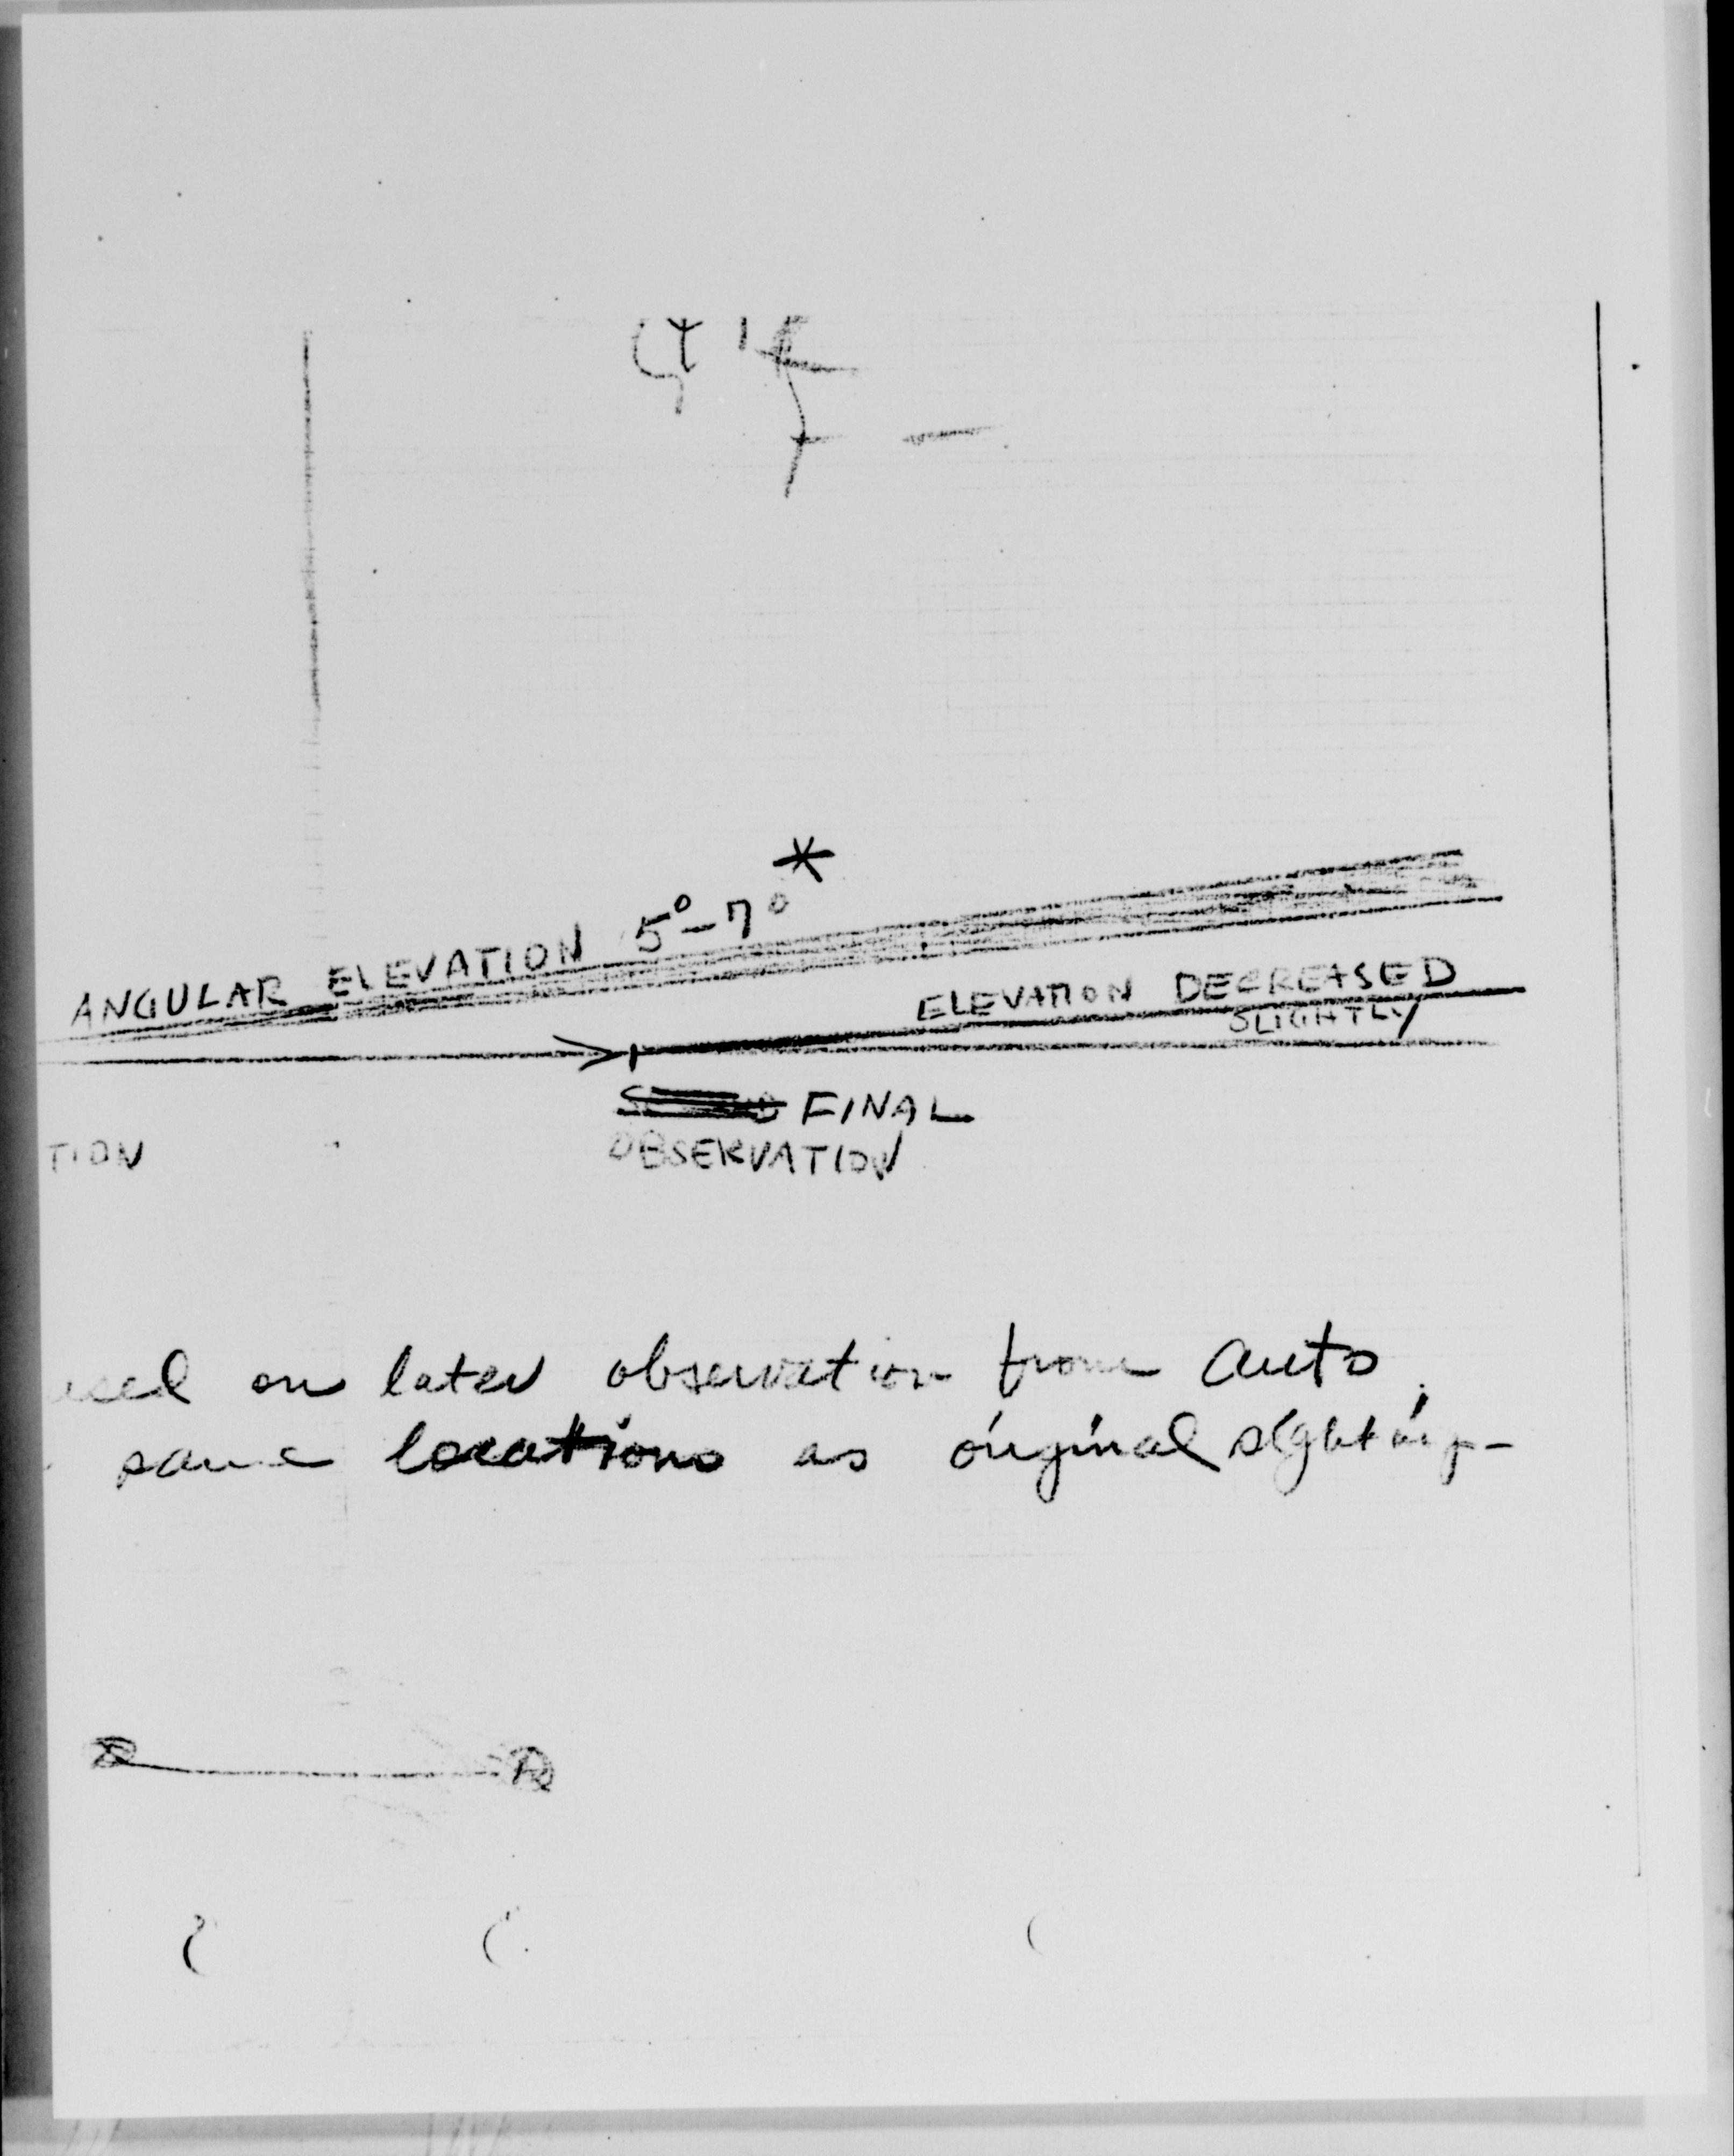 ANGULAR ELEVATION 5°-7° *
ELEVATION DECREASED
SLIGHTLY
FINAL
OBSERVATION
TION
on later observation from auto.
same locations as original sighting-